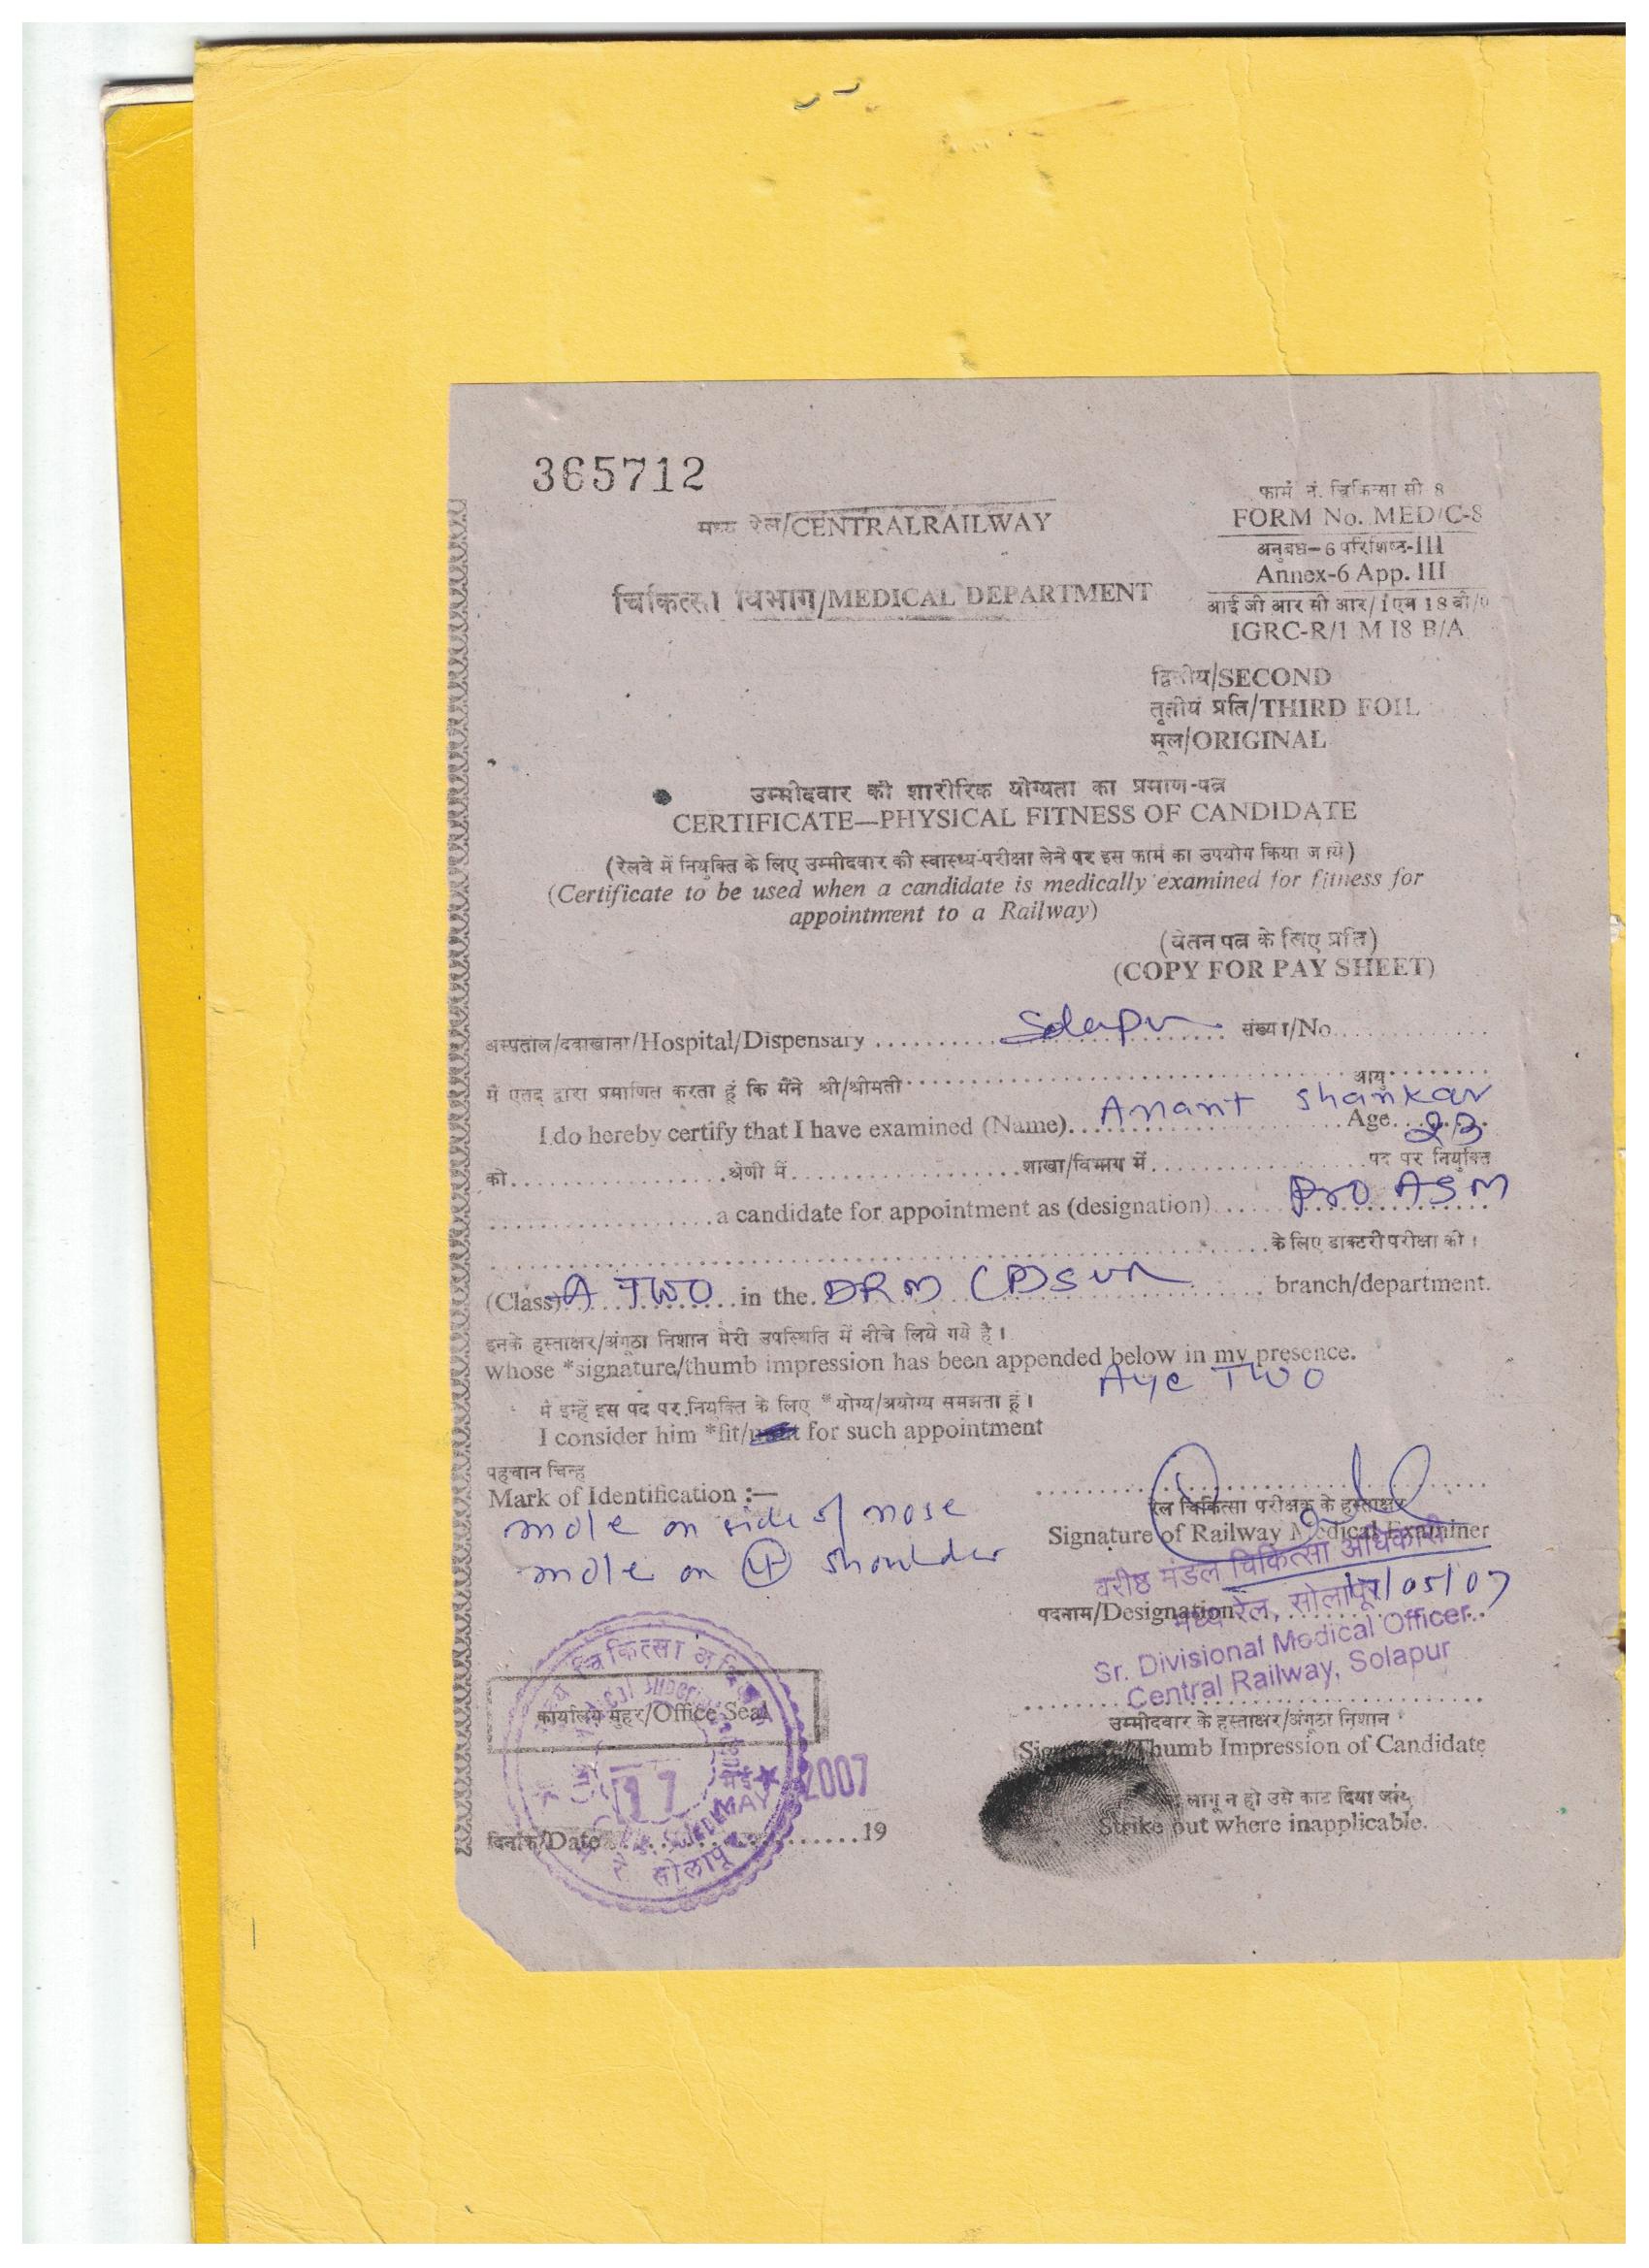 365712
मध्य रेल/CENTRALRAILWAY
चिकित्सा विभाग/MEDICAL DEPARTMENT
फार्म नं. चिकित्सा सी 8
FORM No. MED/C-8
अनुबंध-6 परिशिष्ट-III
Annex-6 App. III
आई जी आर सी आर/1 एम 18 बी/
IGRC-R/1 M I8 B/A
द्वितीय/SECOND
तृतीय प्रति/THIRD FOIL
मूल/ORIGINAL
उम्मीदवार की शारीरिक योग्यता का प्रमाण-पत्र
CERTIFICATE—PHYSICAL FITNESS OF CANDIDATE
(रेलवे में नियुक्ति के लिए उम्मीदवार की स्वास्थ्य-परीक्षा लेने पर इस फार्म का उपयोग किया जाये)
(Certificate to be used when a candidate is medically examined for fitness for
appointment to a Railway)
(वेतन पत्र के लिए प्रति)
(COPY FOR PAY SHEET)
अस्पताल/दवाखाना/Hospital/Dispensary ........ Solapur ........ संख्या/No..............
मैं एतद् द्वारा प्रमाणित करता हूं कि मैंने श्री/श्रीमती.............................. आयु..........
I do hereby certify that I have examined (Name)... Anant Shankar Age... 23
को....................श्रेणी में....................शाखा/विभाग में....................पद पर नियुक्ति
....................a candidate for appointment as (designation)..... Pro ASM
..............................के लिए डाक्टरी परीक्षा की।
(Class) A TWO in the. DRM (P) SUR branch/department.
इनके हस्ताक्षर/अंगूठा निशान मेरी उपस्थिति में नीचे लिये गये है।
whose *signature/thumb impression has been appended below in my presence.
Aye TWO
मैं इन्हें इस पद पर नियुक्ति के लिए *योग्य/अयोग्य समझता हूं।
I consider him *fit/ for such appointment
पहचान चिन्ह
Mark of Identification :—
mole on side of nose
mole on shoulder
रेल चिकित्सा परीक्षक के हस्ताक्षर
Signature of Railway Medical Examiner
वरीष्ठ मंडल चिकित्सा अधिकारी
17/05/07
पदनाम/Designation
मध्य रेल, सोलापूर
Sr. Divisional Medical Officer
Central Railway, Solapur
उम्मीदवार के हस्ताक्षर/अंगूठा निशान
Signature/Thumb Impression of Candidate
लागू न हो उसे काट दिया जाय
Strike out where inapplicable.
कार्यालय मुहर/Office Seal
17 मई MAY 2007
सोलापूर
दिनांक/Date..............................19